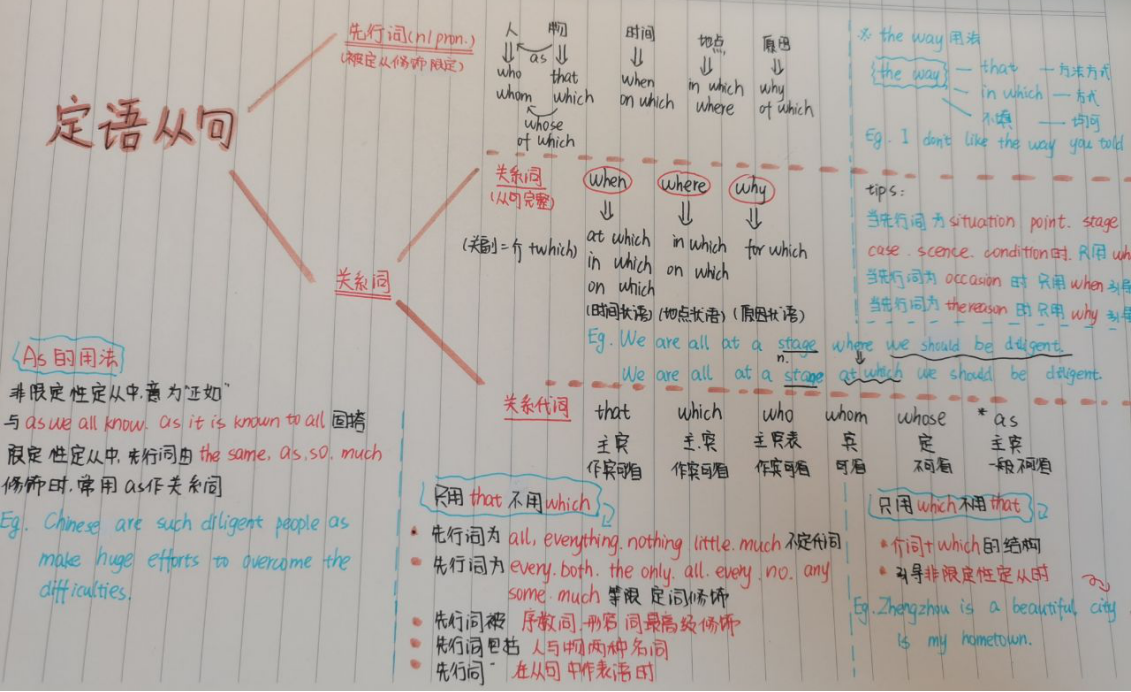 定语从句
先行词(n/pron.)
(被定从修饰限定)
人 物 时间 地点 原因
as
who that when in which why
whom which on which where of which
whose
of which
※ the way 用法
the way — that — 方法方式
in which — 方式
不填 — 均可
Eg. I don't like the way you told
关系词
关系词
(从句完整)
when where why
(关副=介+which)
at which in which for which
in which on which
on which
(时间状语) (地点状语) (原因状语)
Eg. We are all at a stage where we should be diligent.
n.
We are all at a stage at which we should be diligent.
tips:
当先行词为situation point. stage
case. scence. condition时. 只用 wh
当先行词为 occasion 时 只用 when 引导
当先行词为 the reason 时 只用 why 引导
关系代词
that which who whom whose *as
主宾 主.宾 主宾表 宾 定 主宾
作宾可省 作宾可省 作宾可省 可省 不可省 一般不可省
As 的用法
非限定性定从中.意为"正如"
与 as we all know. as it is known to all 固搭
限定性定从中, 先行词由 the same, as, so, much
修饰时. 常用 as作关系词
Eg. Chinese are such diligent people as
make huge efforts to overcome the
difficulties.
只用 that 不用 which
先行词为 all, everything. nothing little. much 不定代词
先行词为 every. both. the only. all. every. no. any
some. much 等限定词修饰
先行词被 序数词.形容词最高级修饰
先行词包括 人与物两种名词
先行词 在从句中作表语时
只用 which 不用 that
介词+which的结构
引导非限定性定从时
Eg. Zhengzhou is a beautiful city
is my hometown.